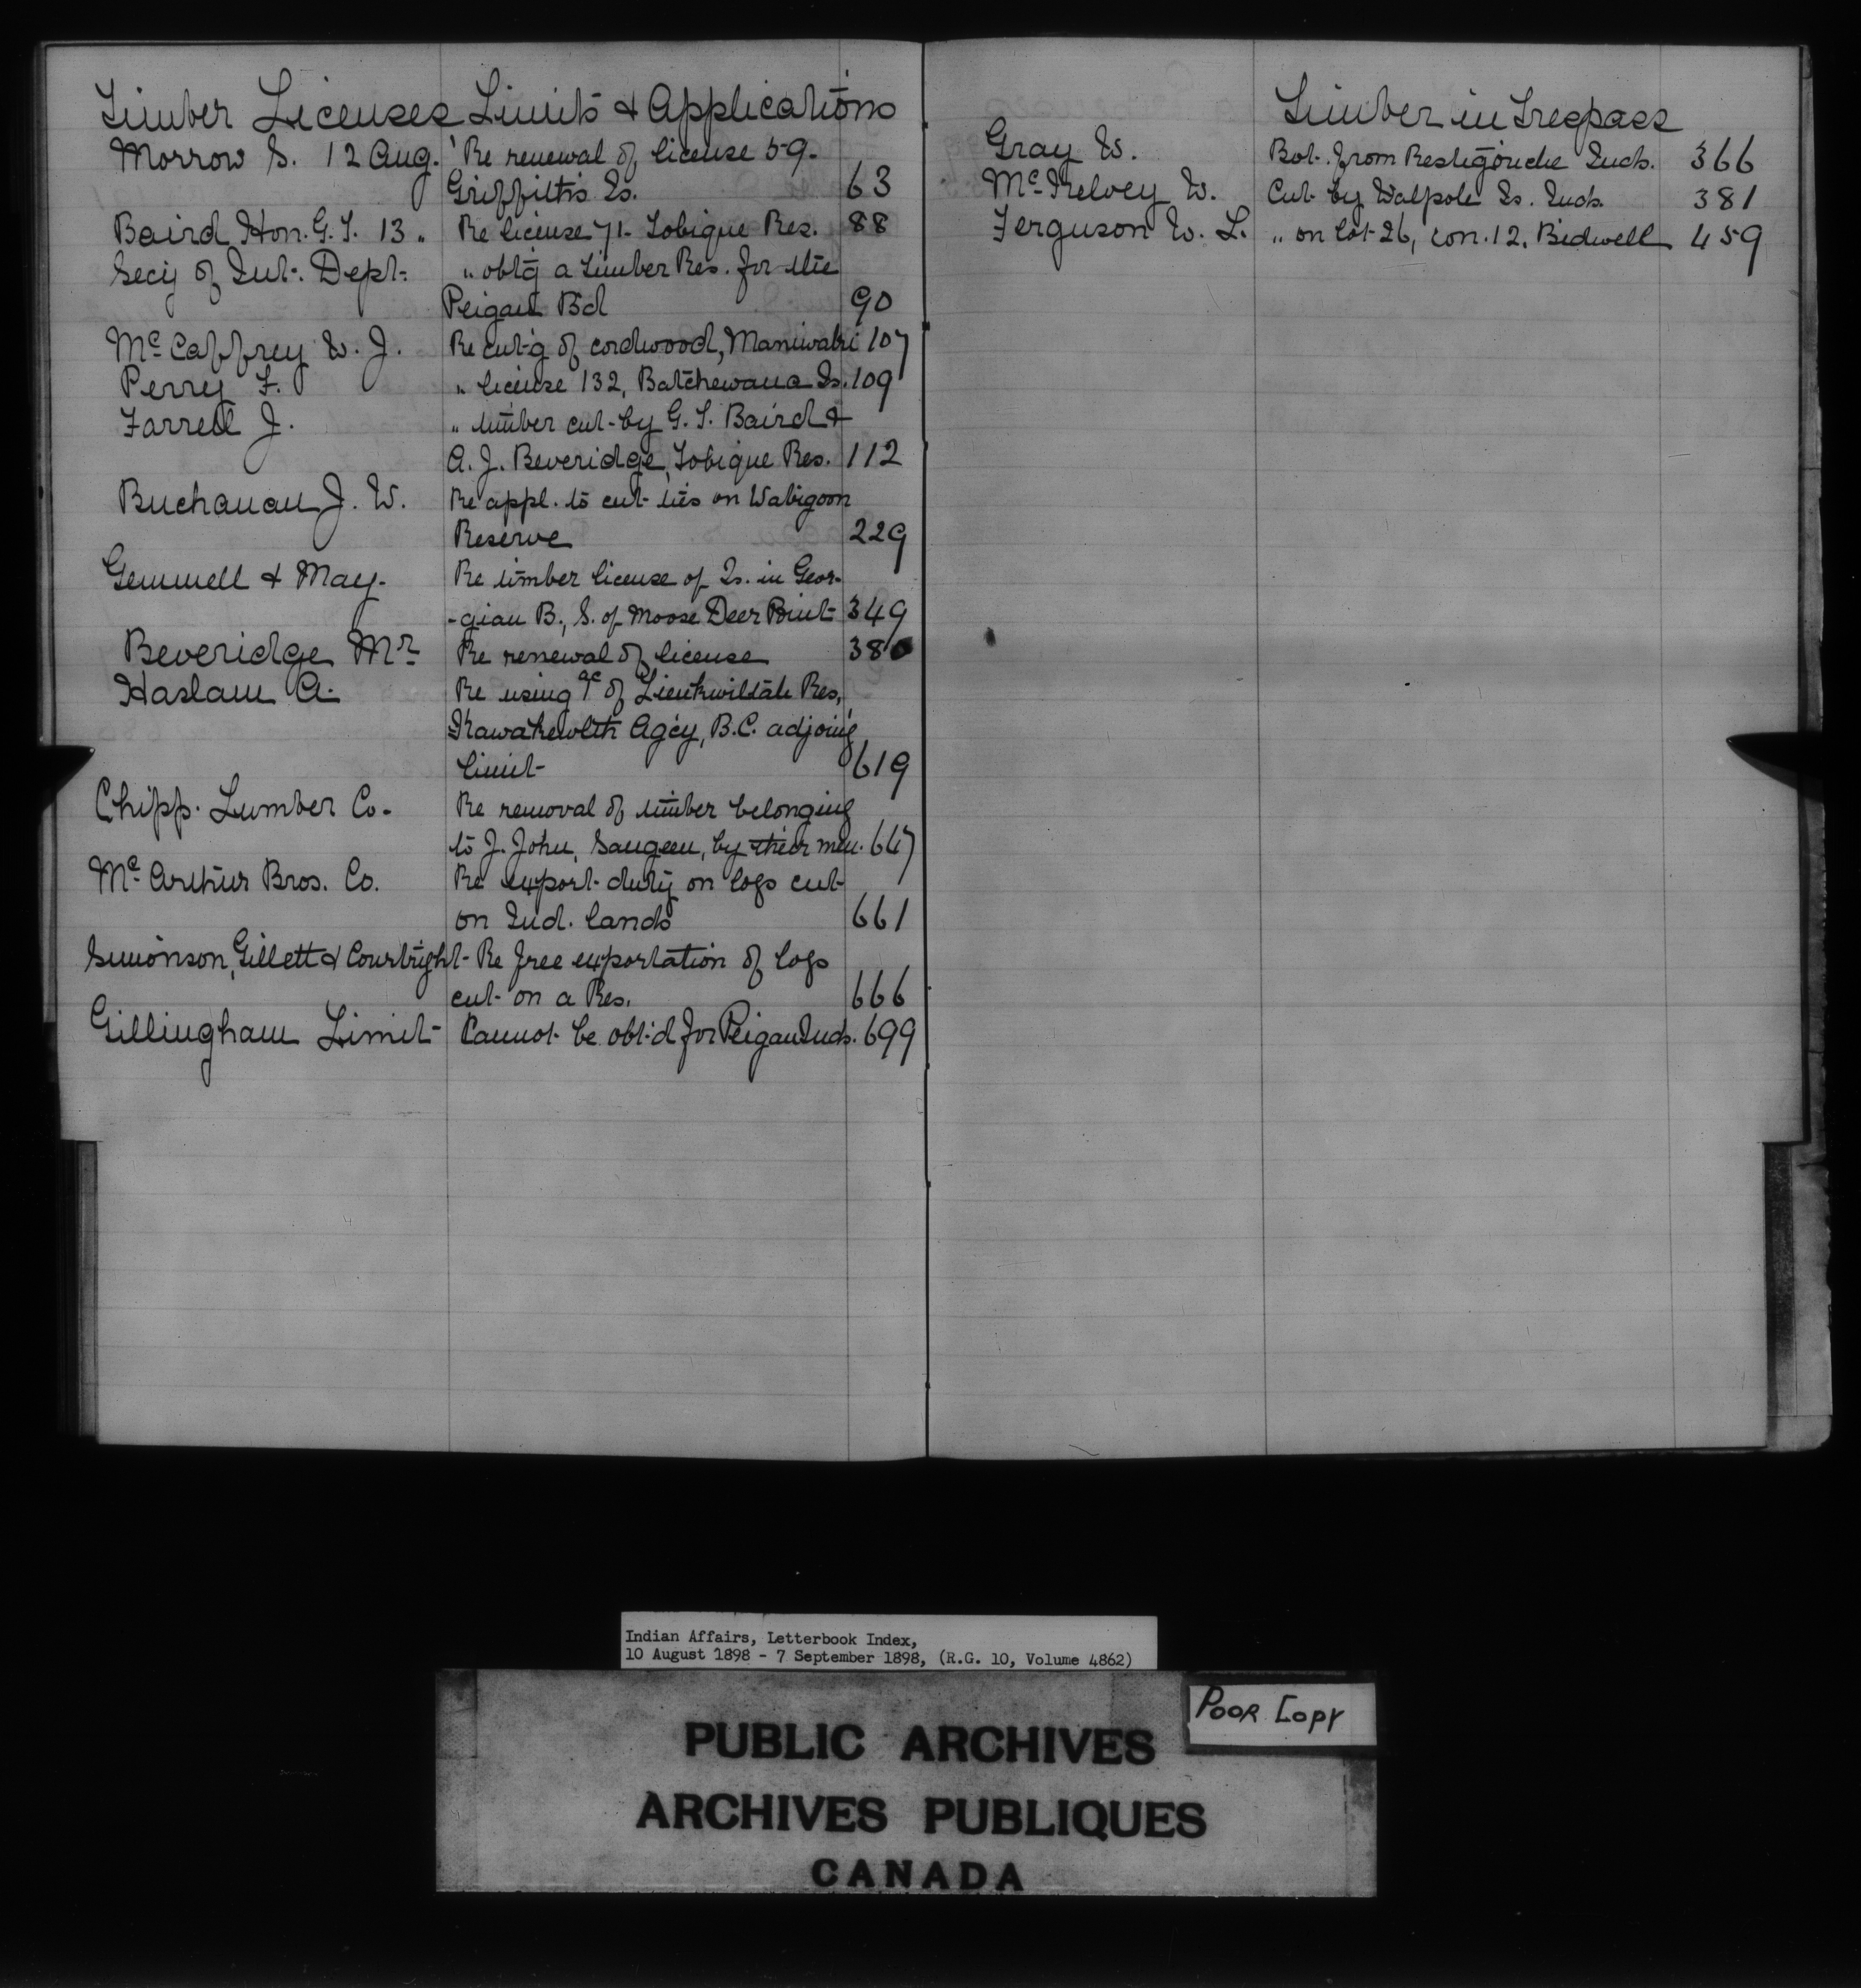 Timber Licenses Limits & Applications
Morrow S. 12 Aug. Re renewal of license 59.
Griffith's Is. 63
Baird Hon. G. T. 13 „ Re license 71 - Tobique Res. 88
Secy of Int. Dept. „ obt'g a timber Res. for the
Peigan Bd 90
McCaffrey W. J. Re cut'g of cordwood, Maniwaki 107
Perry F. „ license 132, Batchewana Is. 109
Farrell J. „ timber cut by G. T. Baird &
A. J. Beveridge, Tobique Res. 112
Buchanan J. W. Re appl. to cut ties on Wabigoon
Reserve 229
Gemmell & May. Re timber license of Is. in Geor-
-gian B., S. of Moose Deer Point 349
Beveridge Mr Re renewal of license 380
Haslam A. Re using ac of Res,
Kawakewlth Agcy, B.C. adjoing
limit 619
Chipp. Lumber Co. Re removal of timber belonging
to J. John, Saugeen, by their men. 647
McArthur Bros. Co. Re export duty on logs cut
on Ind. lands 661
Simonson, Gillett & Courtright - Re free exportation of logs
cut on a Res. 666
Gillingham Limit - Cannot be obt'd for Peigan Inds. 699
Timber in Trespass
Gray W. Bot. from Restigouche Inds. 366
McKelvey W. Cut by Walpole Is. Inds. 381
Ferguson W. L. „ on lot 26, con. 12, Bidwell 459
Indian Affairs, Letterbook Index,
10 August 1898 - 7 September 1898, (R.G. 10, Volume 4862)
Poor Copy
PUBLIC ARCHIVES
ARCHIVES PUBLIQUES
CANADA